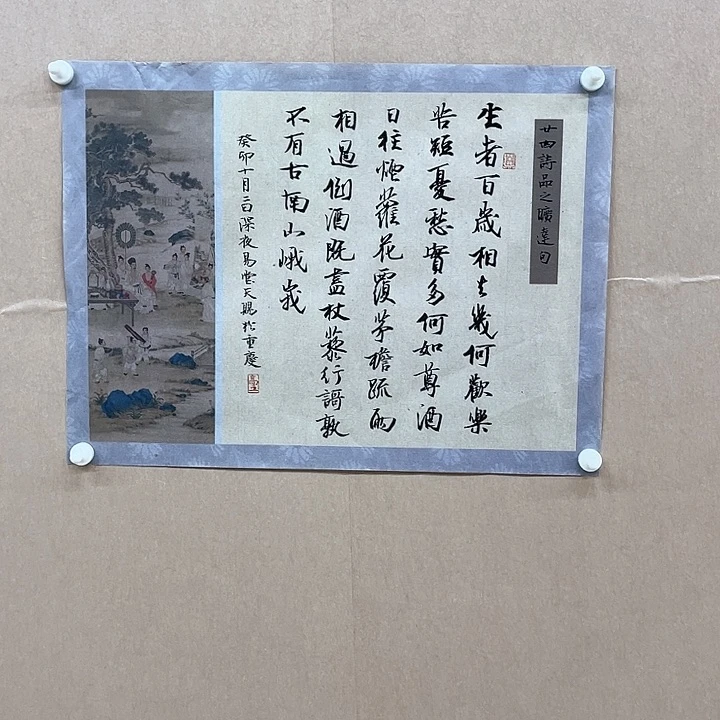 廿四詩品之曠達句
生者百歲相去幾何歡樂
苦短憂愁實多何如尊酒
日往煙蘿花覆茅檐疏雨
相過倒酒既盡杖藜行謌孰
不有古南山峨峩
癸卯十月三日深夜易堂天賜於重慶